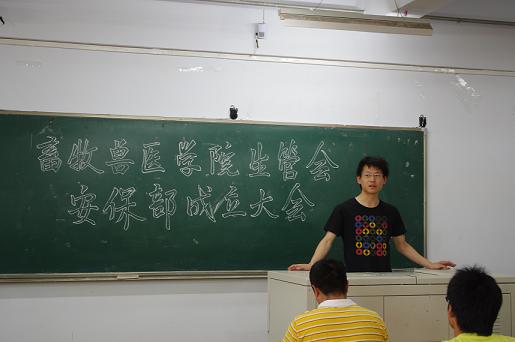 畜牧兽医学院生管会
安保部成立大会